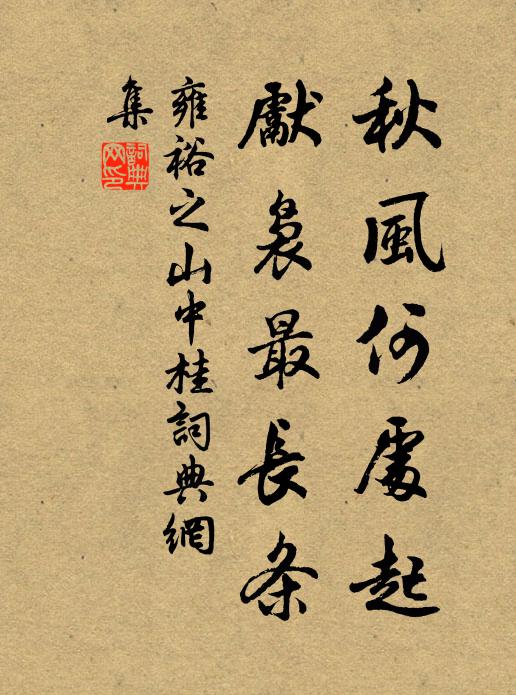 秋風何處起
獻裊最長条
雍裕之山中桂詞典網
集
詞典
网印